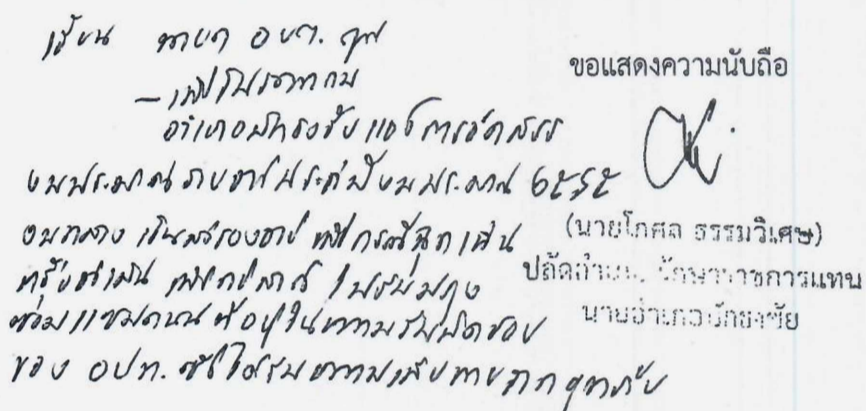 เรียน นายก อบต. ตูม
- เพื่อโปรดทราบ
อำเภอปักธงชัย แจ้งการจัดสรร
งบประมาณรายจ่ายประจำปีงบประมาณ 2565
งบกลาง เงินสำรองจ่าย เพื่อกรณีฉุกเฉิน
หรือจำเป็น ปรับปรุง
ซ่อมแซมถนนที่อยู่ในความรับผิดชอบ
ของ อปท. ซึ่งได้รับความเสียหายจากอุทกภัย
ขอแสดงความนับถือ
(นายโกศล ธรรมวิเศษ)
ปลัดอำเภอ รักษาราชการแทน
นายอำเภอปักธงชัย